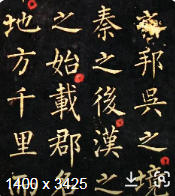 邦吳之
秦之後漢之
之始載郡
地方千里
1400 x 3425